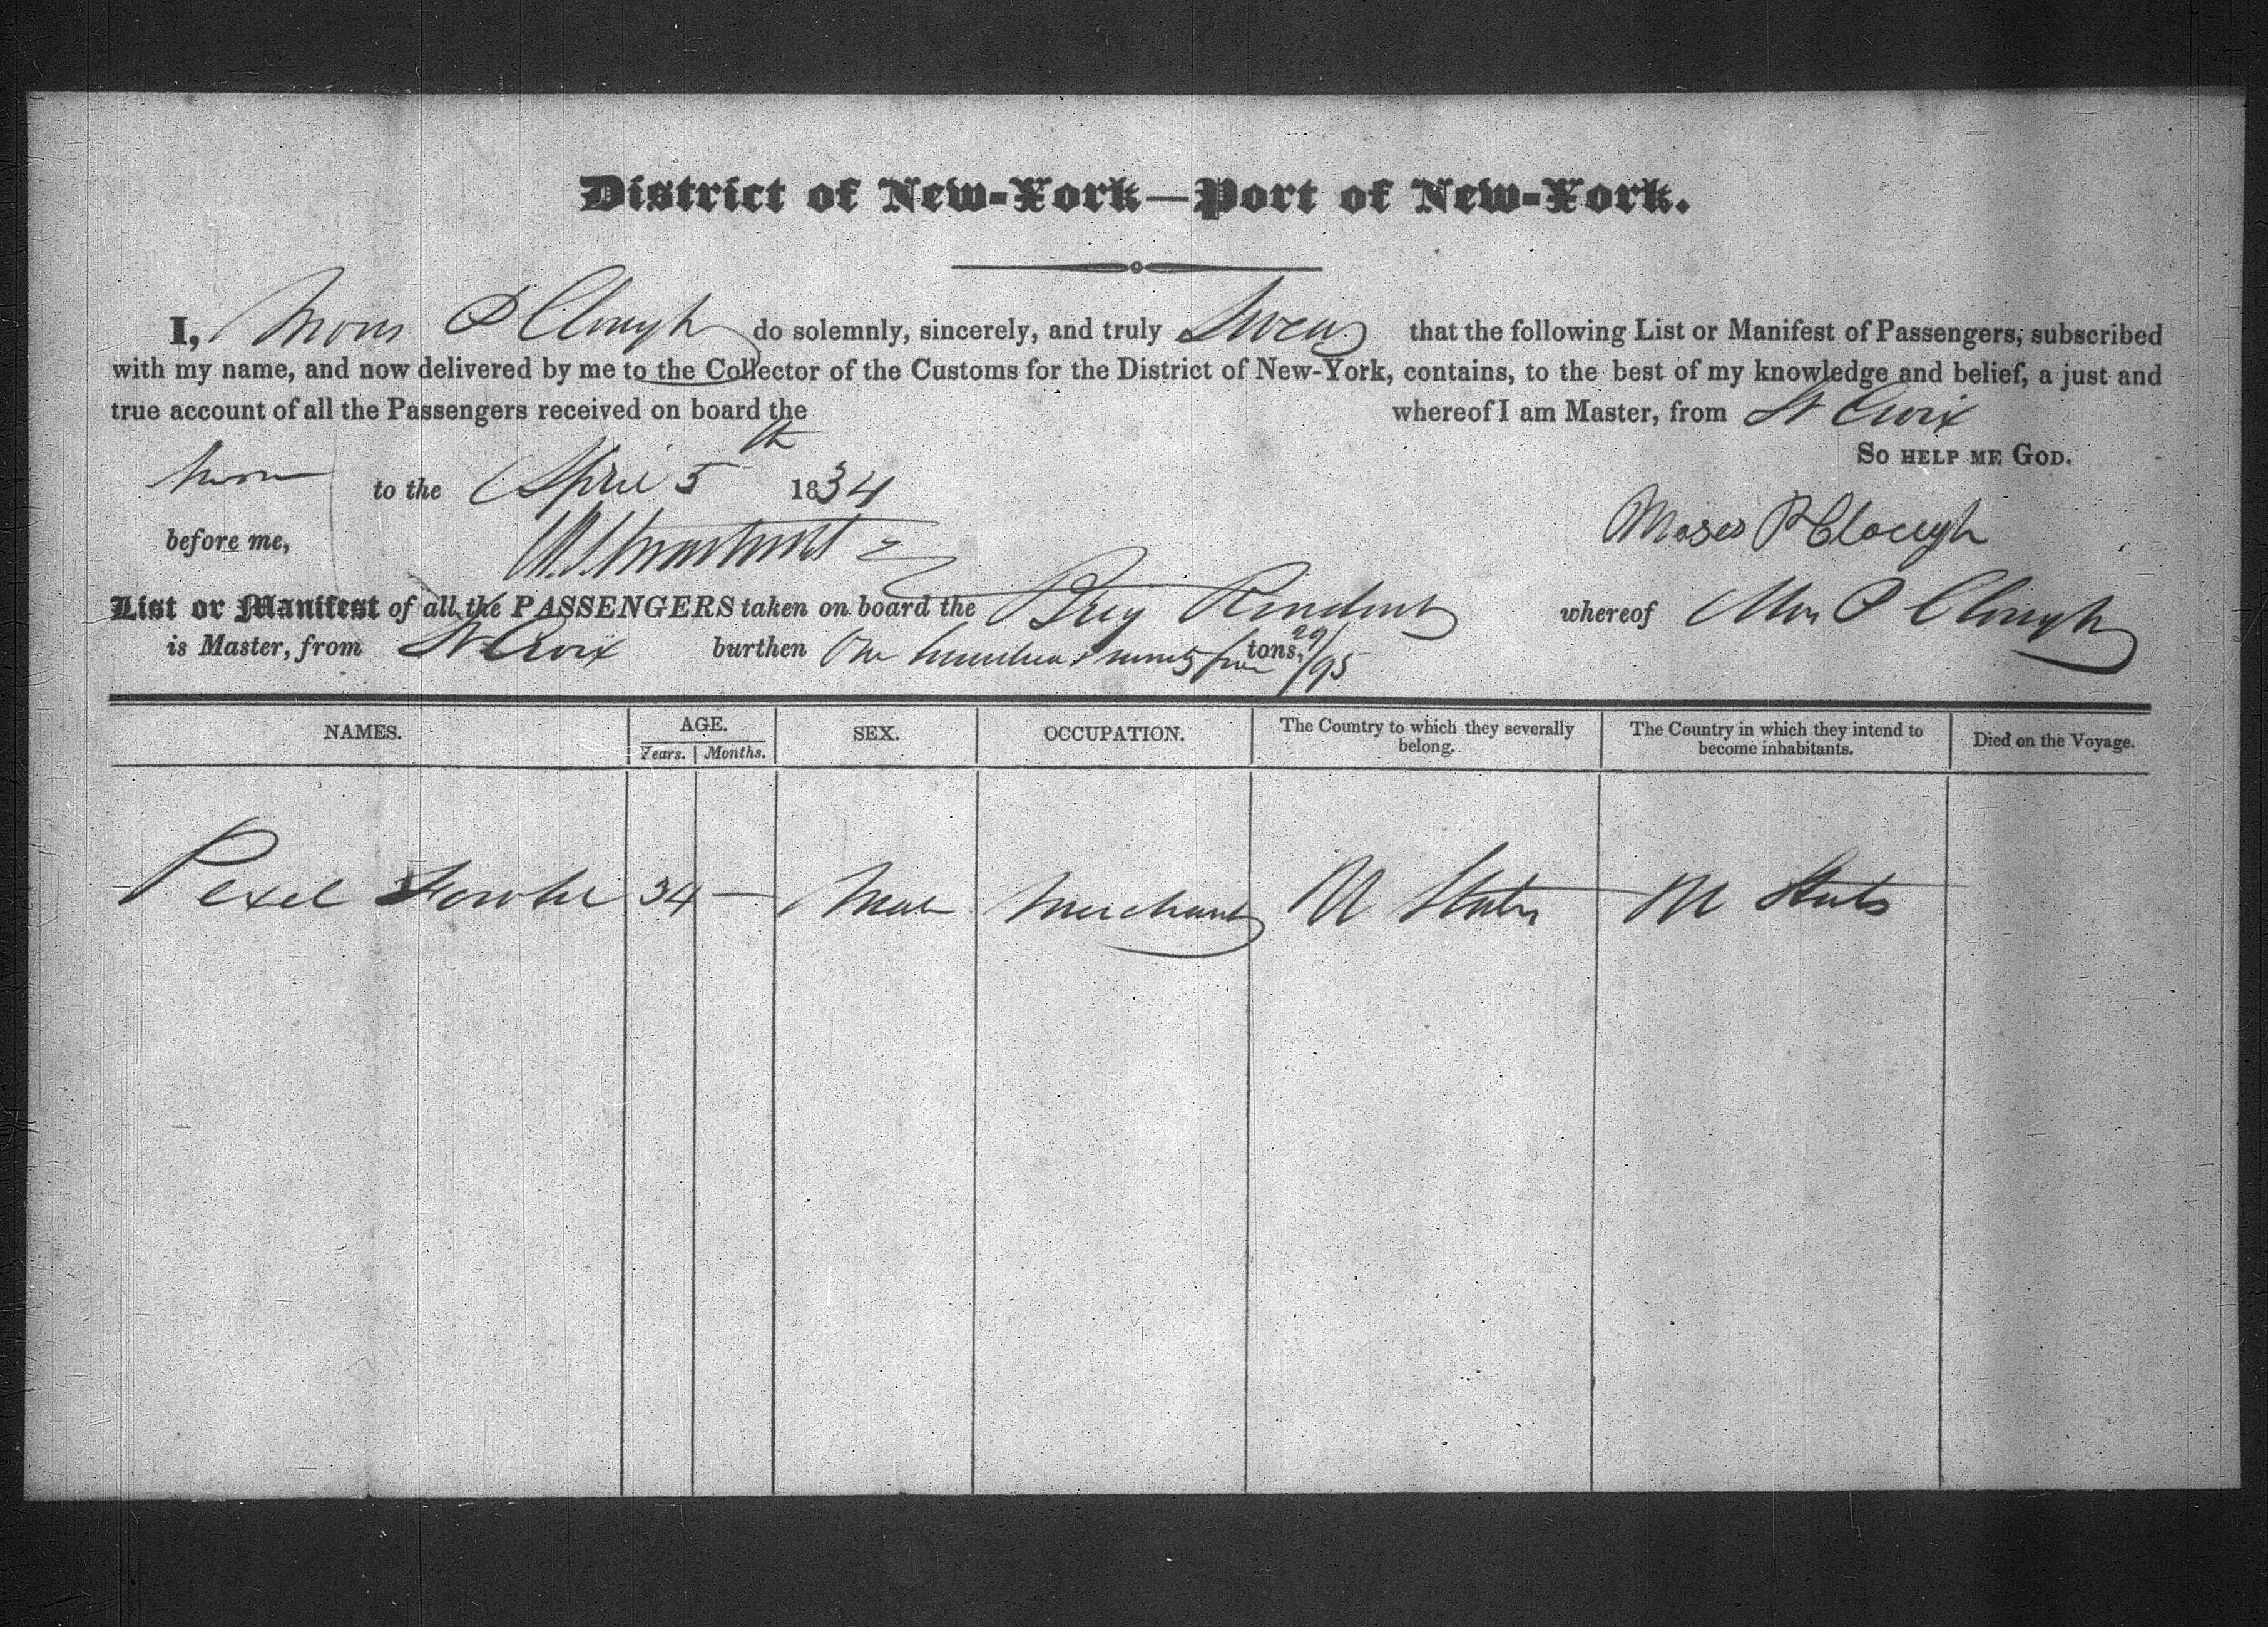 District of New-York—Port of New-York.
I, Moses P Clough do solemnly, sincerely, and truly Swear that the following List or Manifest of Passengers, subscribed
with my name, and now delivered by me to the Collector of the Customs for the District of New-York, contains, to the best of my knowledge and belief, a just and
true account of all the Passengers received on board the whereof I am Master, from St Croix
So help me God.
Sworn to the April 5th 1834
Moses P Clough
before me,
List or Manifest of all the PASSENGERS taken on board the Brig whereof Moses P Clough
is Master, from St Croix burthen One hundred & ninety tons, 29/95
NAMES. AGE. SEX. OCCUPATION. The Country to which they severally belong. The Country in which they intend to become inhabitants. Died on the Voyage.
Years. Months.
Pexel Fowler 34 — Male Merchant U States U States